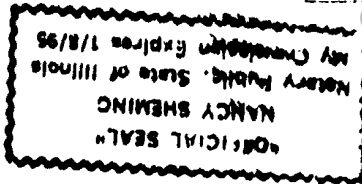 "OFFICIAL SEAL"
NANCY SHEMING
Notary Public, State of Illinois
My Commission Expires 1/8/95